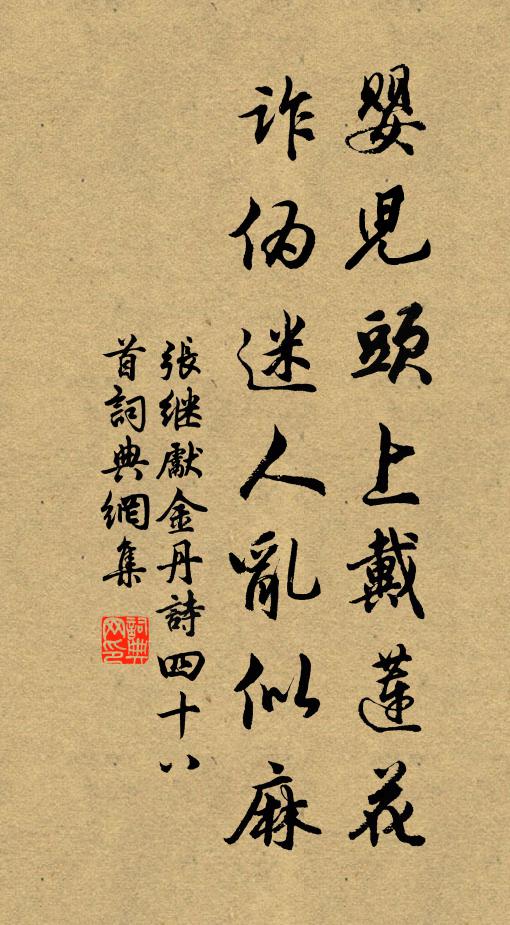 嬰兒頭上戴蓮花
詐偽迷人亂似麻
張继獻金丹詩四十八
首詞典網集
詞典网印